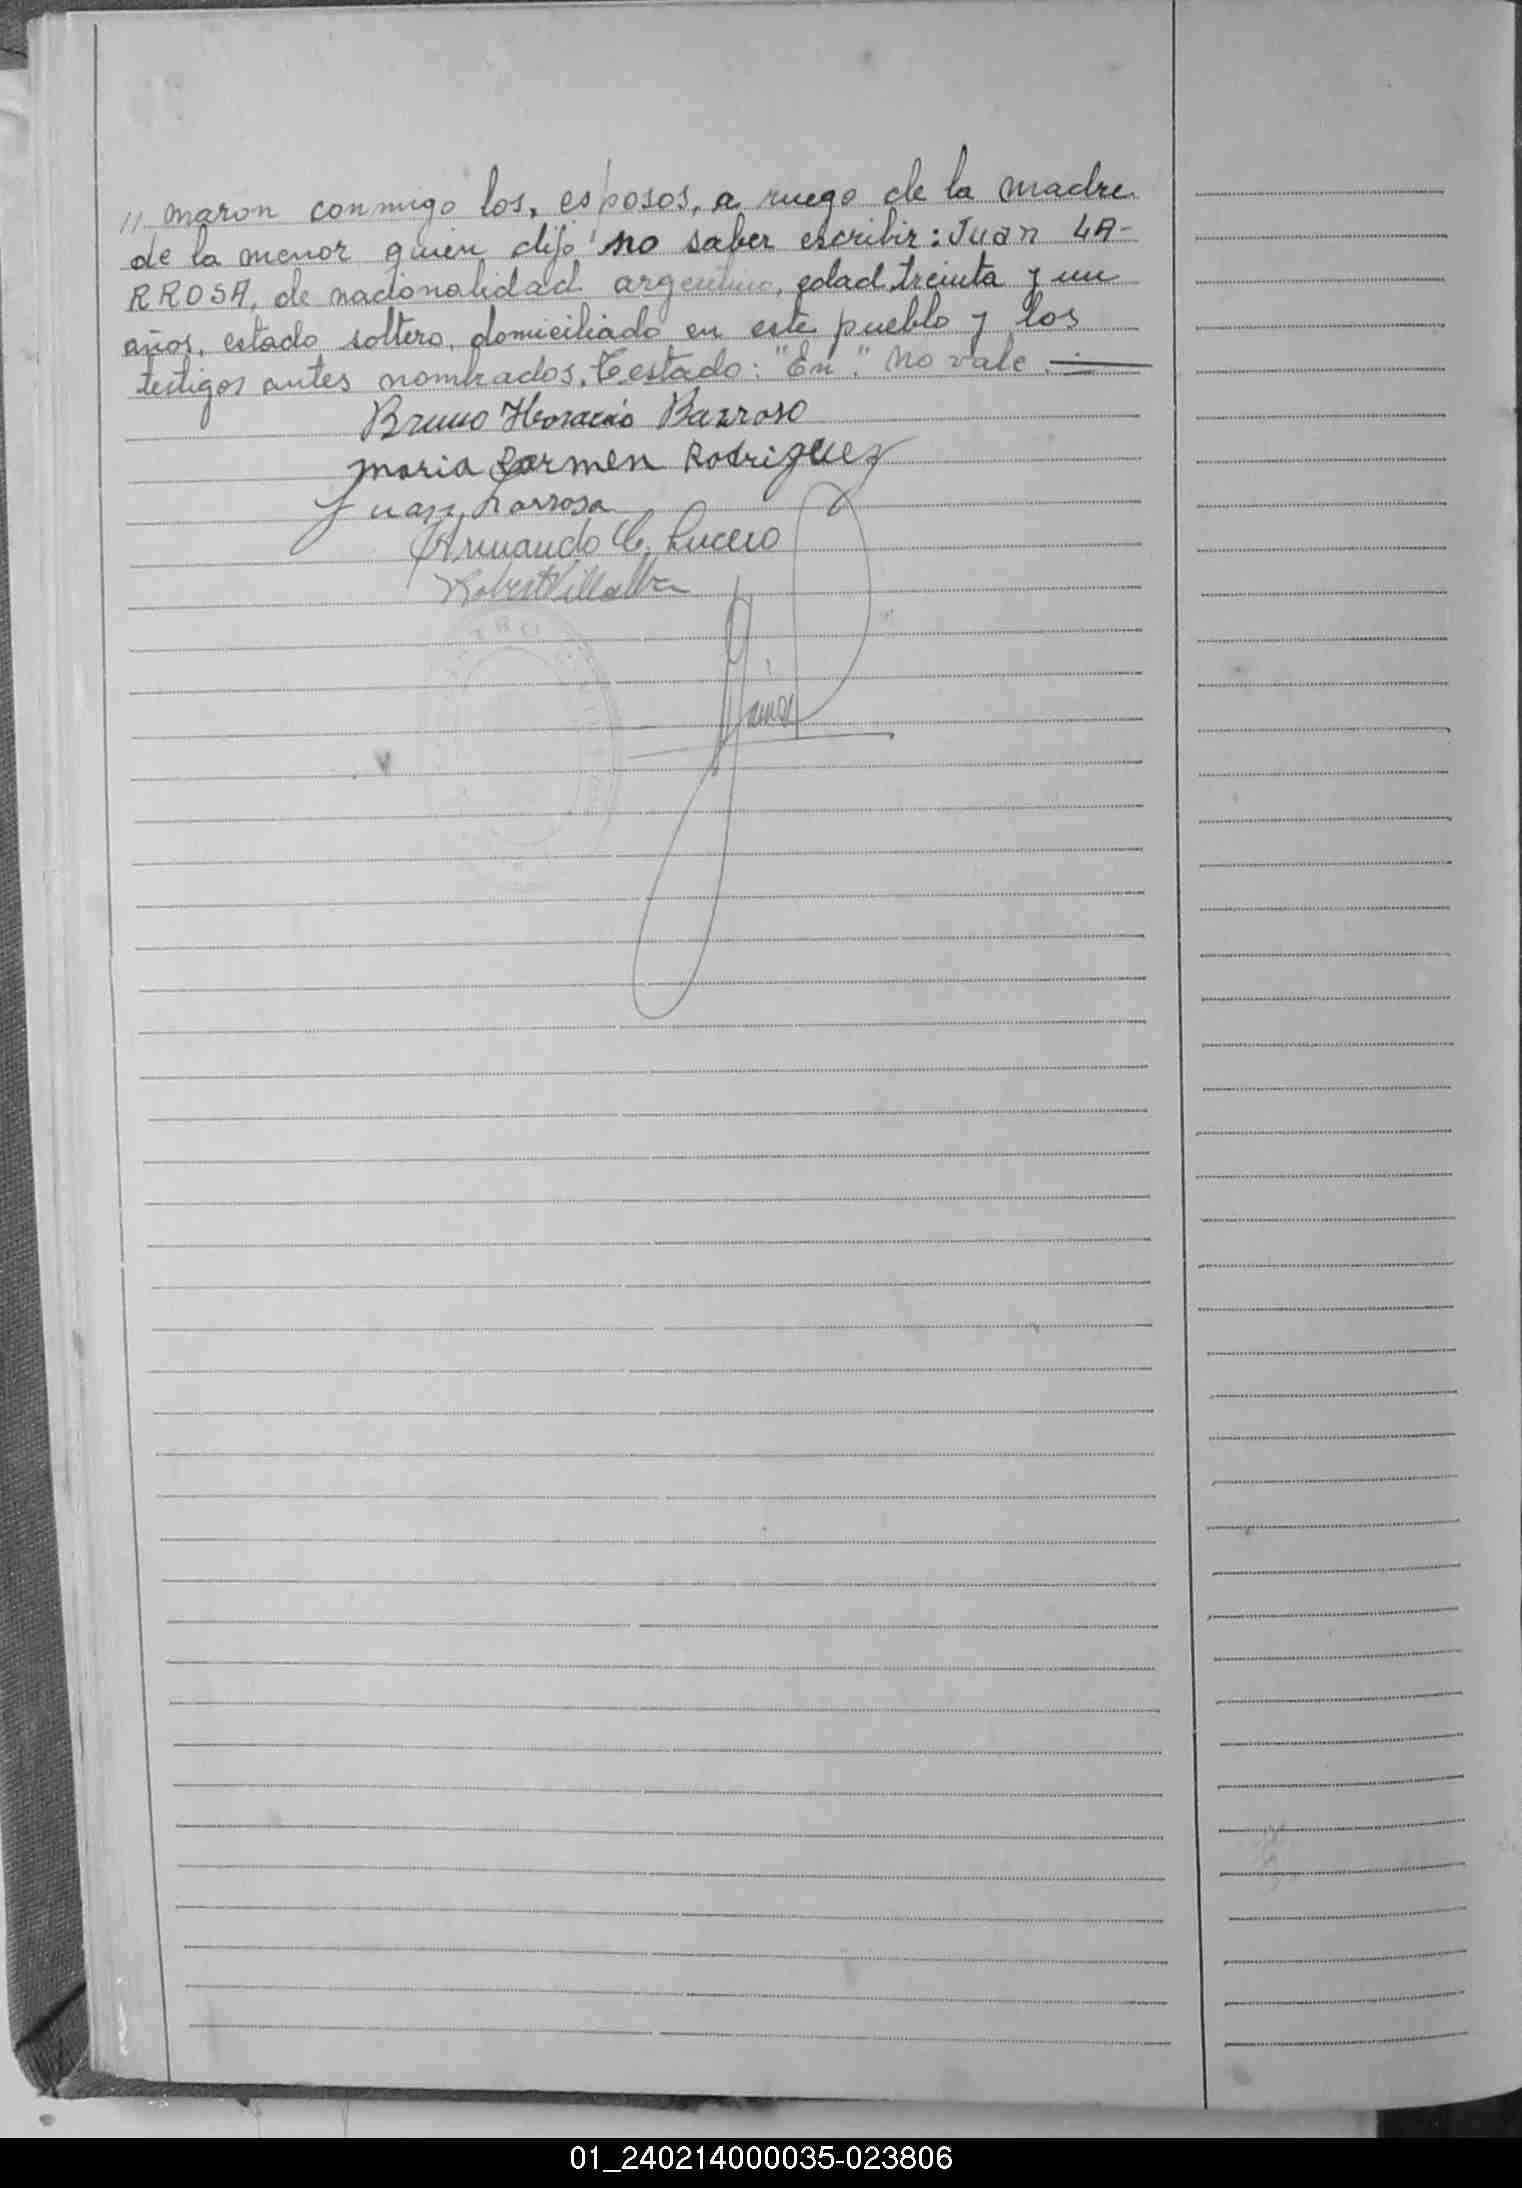 // maron conmigo los, esposos, a ruego de la madre
de la menor quien dijo no saber escribir: Juan LA-
RROSA, de nacionalidad argentino, edad treinta y un
años, estado soltero, domiciliado en este pueblo y los
testigos antes nombrados. Testado: "En". No vale.
Bruno Horacio Barroso
Maria Carmen Rodriguez
Juan Larrosa
Armando C. Lucero
Robert Villalba
01_240214000035-023806